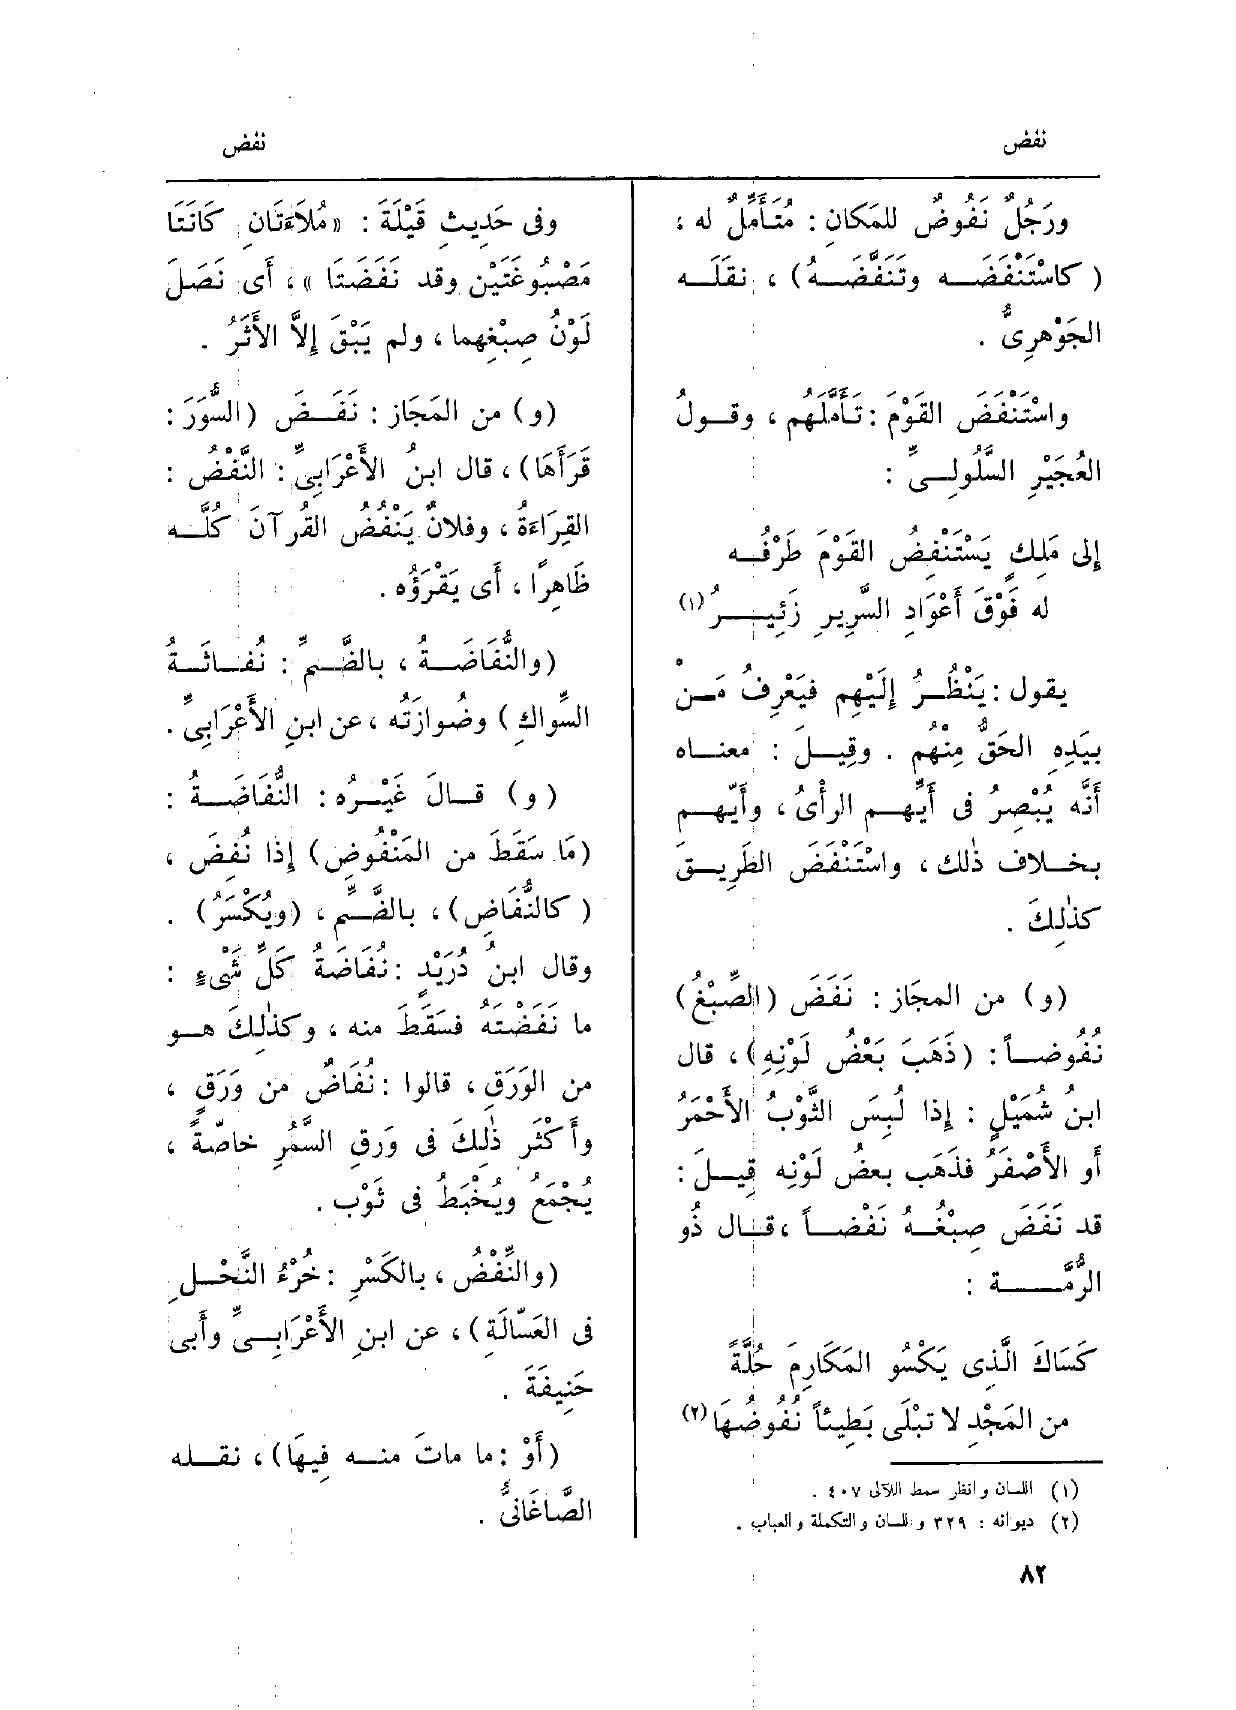 نفض
نفض
ورَجُلٌ نَفُوضٌ للمَكانِ : مُتَأَمِّلٌ له ؛
( كاسْتَنْفَضَـــه وتَنَفَّضَــهُ ) ، نقَلَــه
الجَوْهرِىُّ .
واسْتَنْفَضَ القَوْمَ : تَأَمَّلَهم ، وقــولُ
العُجَيْرِ السَّلُولِــىِّ :
إلى مَلِكٍ يَسْتَنْفِضُ القَوْمَ طَرْفُــه
له فَوْقَ أَعْوَادِ السَّرِيرِ زَئِيــــرُ (١)
يقول : يَنْظُــرُ إِلَيْهِم فَيَعْرِفُ مَــنْ
بيَدِه الحَقُّ مِنْهُم . وقِيــلَ : معنــاه
أَنَّه يُبْصِرُ فى أَيِّهــم الرأْىُ ، وأَيّهــم
بخــلاف ذٰلك ، واسْتَنْفَضَ الطَّرِيــقَ
كذٰلِكَ .
(و) من المجَازِ : نَفَضَ (الصِّبْغُ)
نُفُوضــاً : (ذَهَبَ بَعْضُ لَوْنِهِ) ، قال
ابنُ شُمَيْلٍ : إذا لُبِسَ الثَّوْبُ الأَحْمَرُ
أو الأَصْفَرُ فذَهَب بعضُ لَوْنِه قِيــلَ :
قد نَفَضَ صِبْغُــهُ نَفْضــاً ، قــال ذُو
الرُّمَّــــة :
كَسَاكَ الَّذِى يَكْسُو المَكَارِمَ حُلَّةً
من المَجْدِ لا تَبْلَى بَطِيئاً نُفُوضُهَا (٢)
(١) اللسان وانظر سمط اللآلى ٤٠٧ .
(٢) ديوانه : ٣٢٩ واللسان والتكملة والعباب .
٨٢
وفى حَدِيثِ قَيْلَةَ : « مُلاَءَتَانِ كَانَتَا
مَصْبُوغَتَيْن وقد نَفَضَتَا » ، أَى نَصَلَ
لَوْنُ صِبْغِهِما ، ولم يَبْقَ إِلاَّ الأَثَرُ .
(و) من المَجَاز : نَفَــضَ (السُّوَرَ :
قَرَأَهَا) ، قال ابنُ الأَعْرَابِىِّ : النَّفْضُ :
القِرَاءَةُ ، وفلانٌ يَنْفُضُ القُرآنَ كُلَّــه
ظَاهِرًا ، أَى يَقْرَؤُه .
(والنُّفَاضَــةُ ، بالضَّــمِّ : نُفــاثَــةُ
السِّواكِ ) وضُوازَتُه ، عن ابنِ الأَعْرَابِىِّ .
(و) قــالَ غَيْــرُه : النُّفَاضَــةُ :
(مَا سَقَطَ من المَنْفُوضِ) إذا نُفِضَ ،
( كالنُّفَاضِ) ، بالضَّــمِّ ، (ويُكْسَرُ) .
وقال ابنُ دُرَيْدٍ : نُفَاضَةُ كُلِّ شَىْءٍ :
ما نَفَضْتَهُ فسَقَطَ منه ، وكذٰلِكَ هــو
من الوَرَقِ ، قالوا : نُفَاضٌ من وَرَقٍ ،
وأَكْثَر ذٰلِكَ فى وَرَقِ السَّمُرِ خاصَّةً ،
يُجْمَعُ ويُخْبَطُ فى ثَوْب .
(والنِّفْضُ ، بالكَسْرِ : خُرْءُ النَّحْــلِ
فى العَسَّالَةِ) ، عن ابنِ الأَعْرَابِــىِّ وأَبى
حَنِيفَةَ .
(أَوْ : ما ماتَ منــه فِيهَا) ، نقــله
الصَّاغَانىُّ .